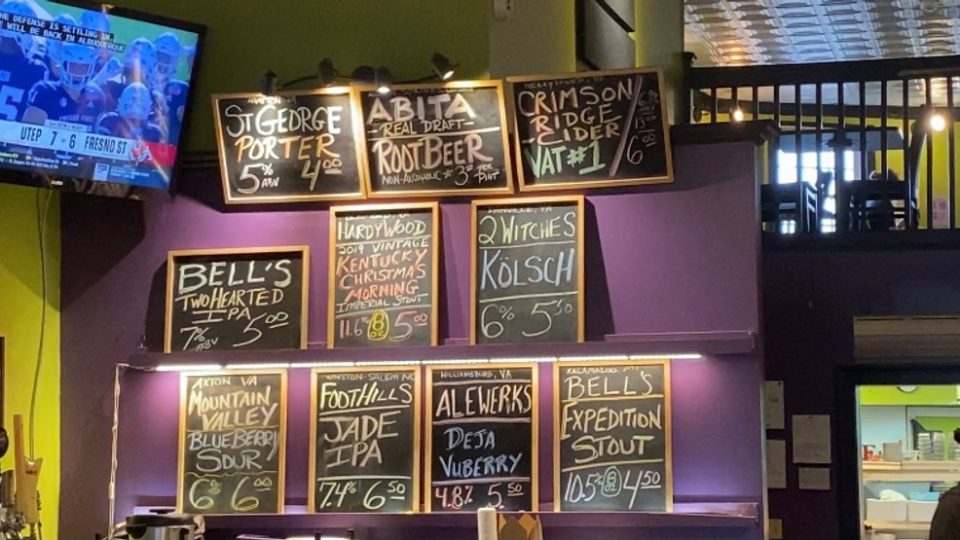 THE DEFENSE IS SETTLING IN.
WILL BE BACK IN ALBUQUERQUE
UTEP 7 6 FRESNO ST
ST GEORGE
PORTER
5% ABV 4.00
ABITA
-REAL DRAFT-
ROOTBEER
NON-ALCOHOLIC
CRIMSON
RIDGE
CIDER
VAT#1
6
BELL'S
TWO HEARTED
IPA
7% ABV 5.00
HARDYWOOD
2019 VINTAGE
KENTUCKY
CHRISTMAS
MORNING
IMPERIAL STOUT
11.6% 8 OZ 5.00
2 WITCHES
KÖLSCH
6% 5.50
AXTON VA
MOUNTAIN
VALLEY
BLUEBERRY
SOUR
6% 6.00
WINSTON-SALEM NC
FOOTHILLS
JADE
IPA
7.4% 6.50
WILLIAMSBURG, VA
ALEWERKS
DEJA
VUBERRY
4.8% 5.50
KALAMAZOO
BELL'S
EXPEDITION
STOUT
10.5% 8 OZ 4.50